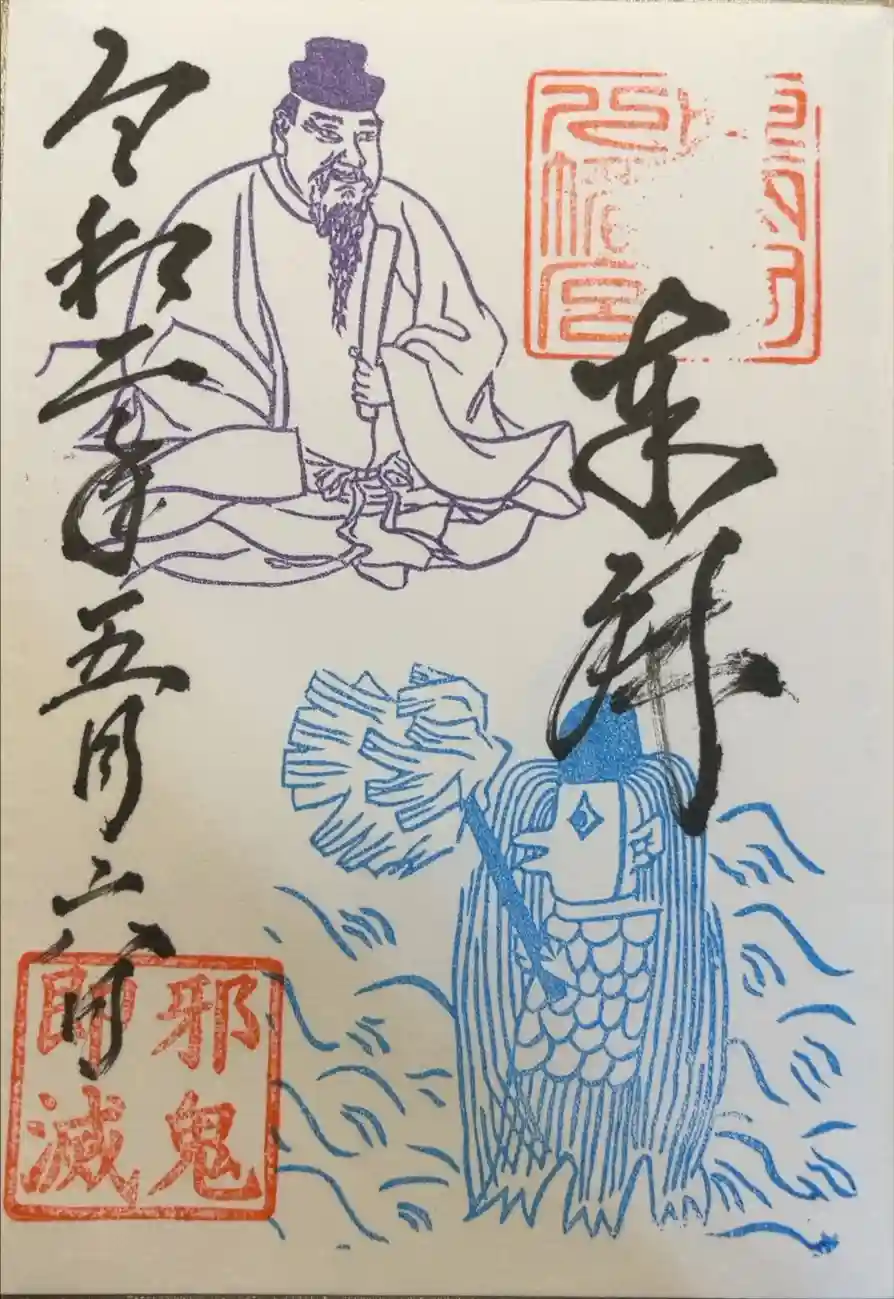 奉拝
令和二年五月六日
邪鬼
即滅